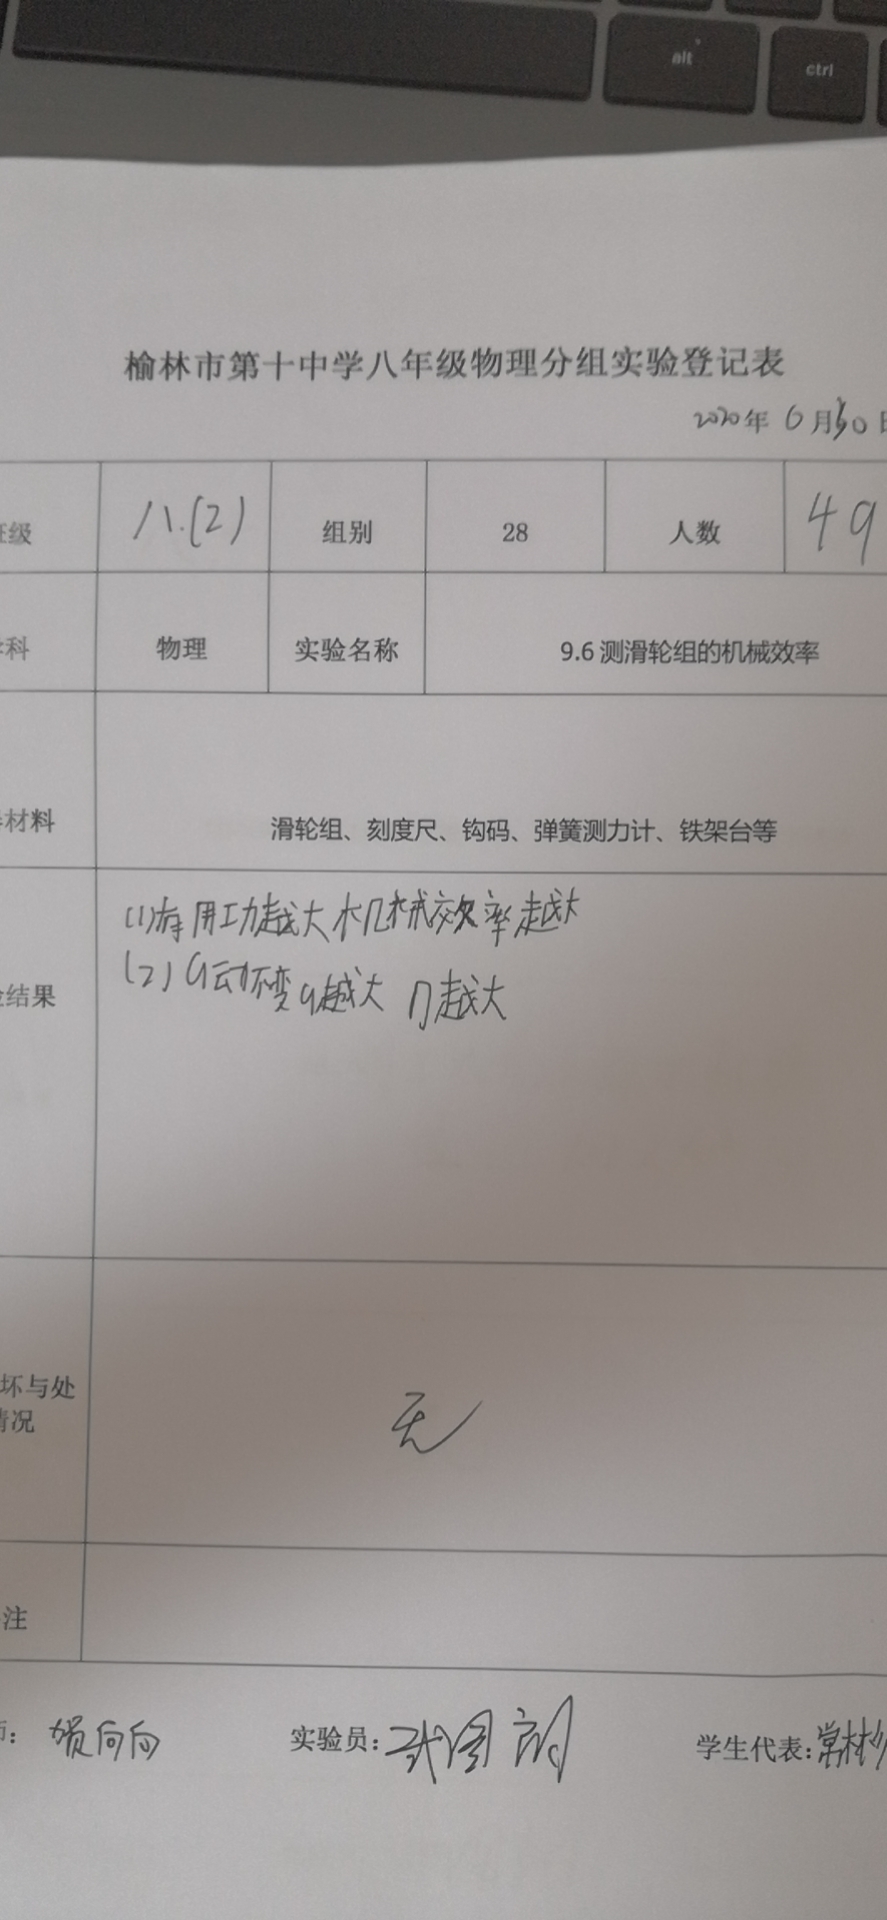 alt
ctrl
榆林市第十中学八年级物理分组实验登记表
2020年 6月30日
班级 八.(2) 组别 28 人数 49
学科 物理 实验名称 9.6 测滑轮组的机械效率
材料 滑轮组、刻度尺、钩码、弹簧测力计、铁架台等
(1)有用功越大机械效率越大
结果
(2) G动不变 G越大 η越大
坏与处
情况
无
注
师: 贺向向 实验员: 学生代表:常彬彬